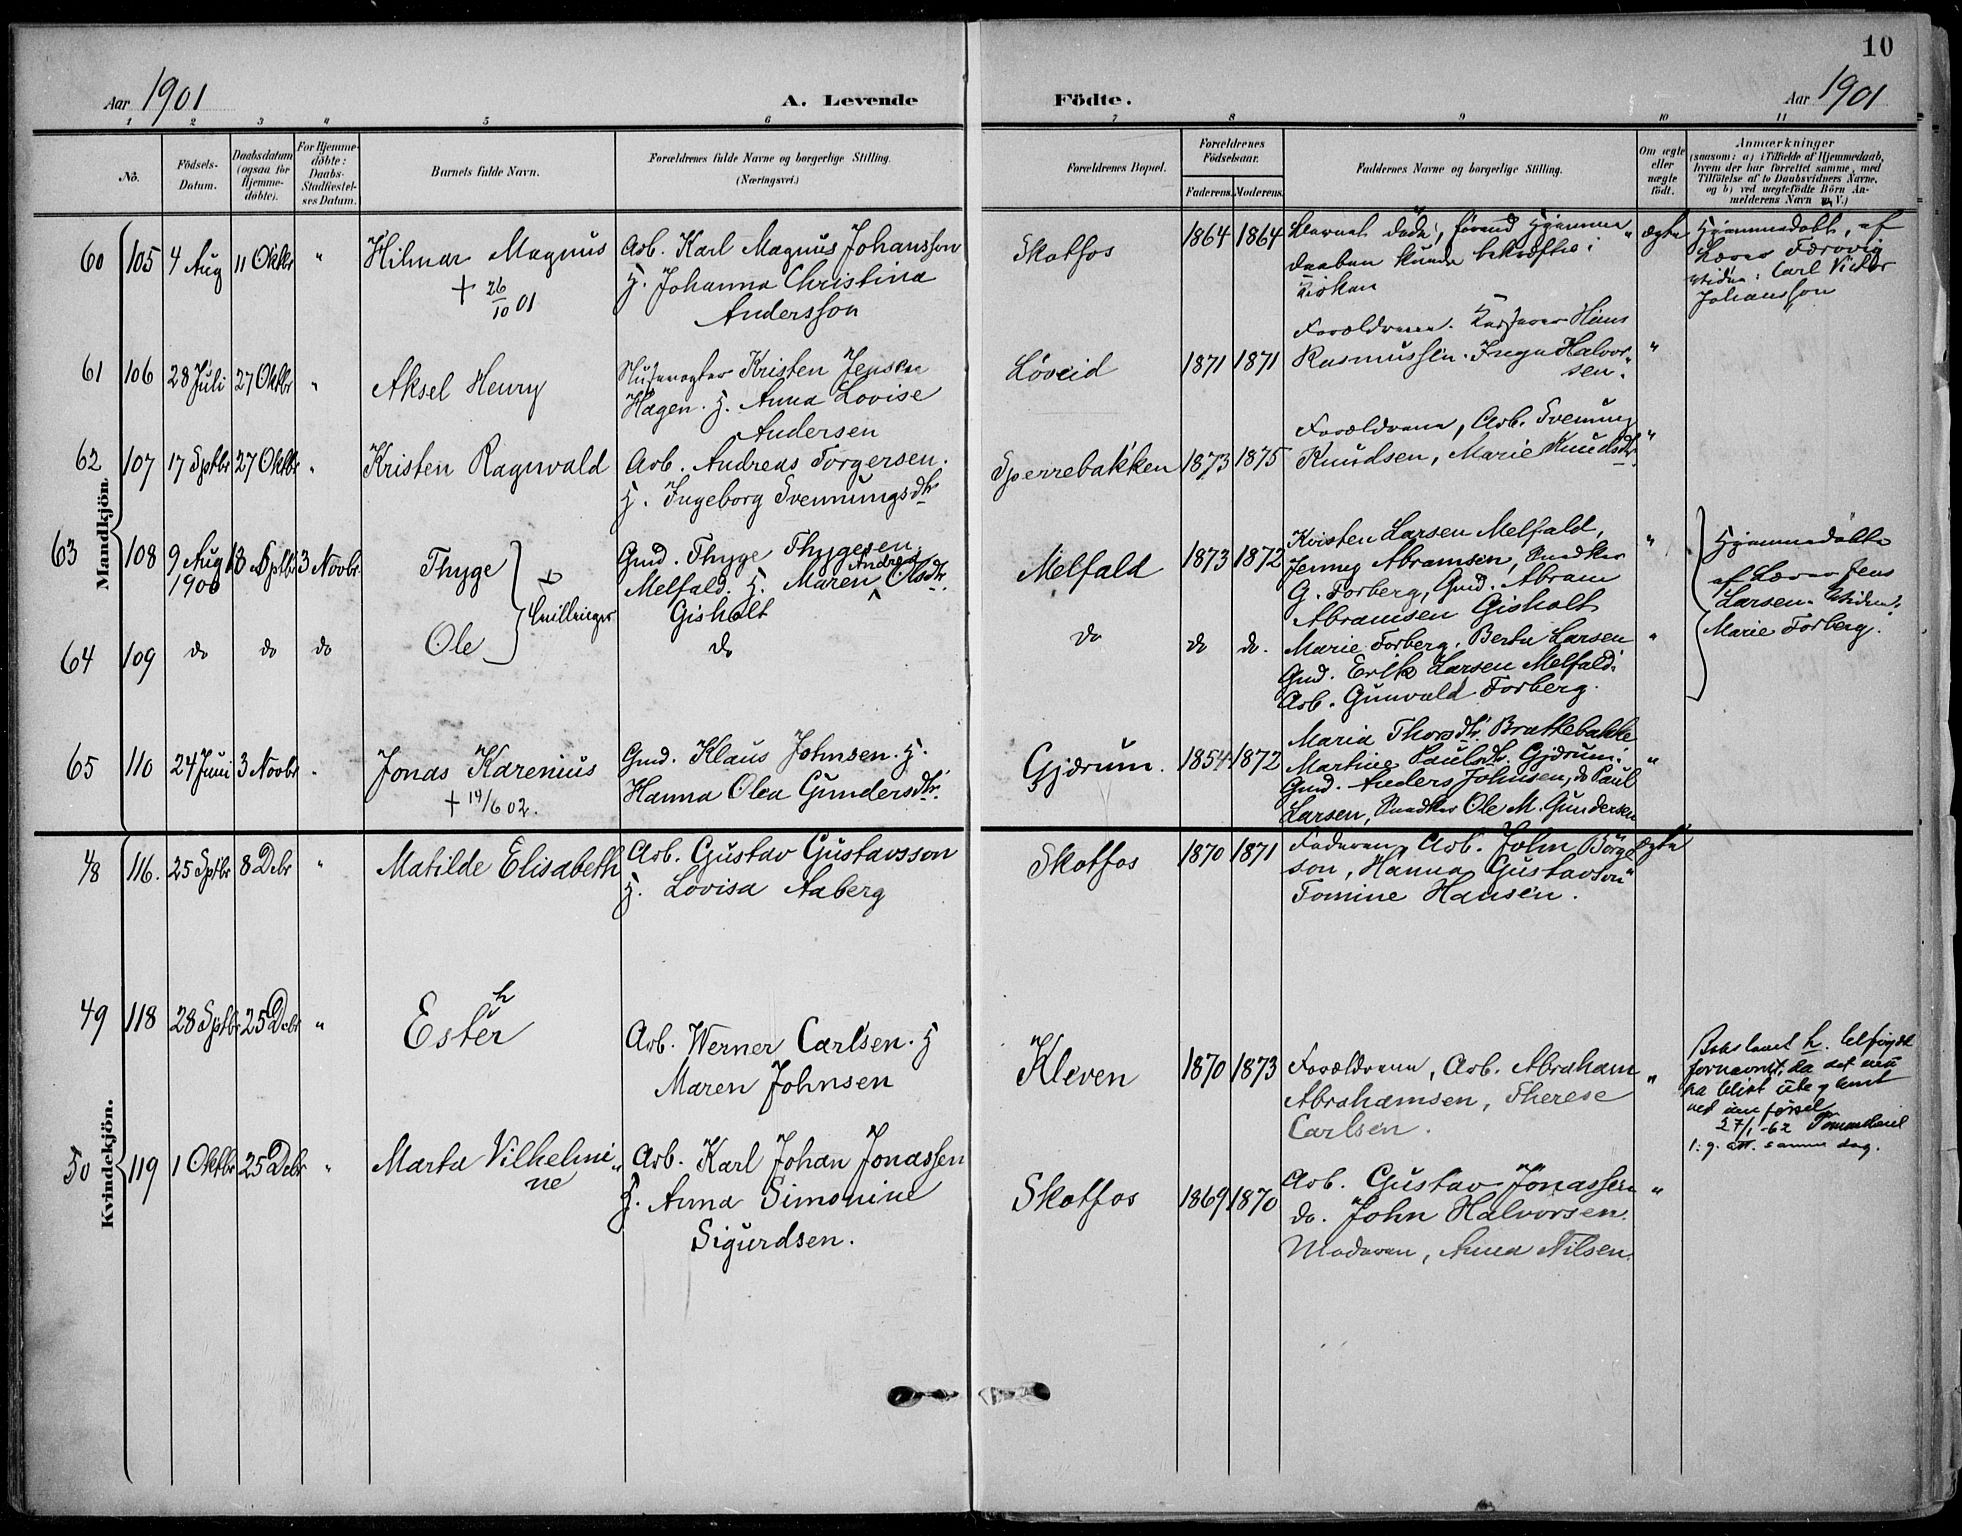 10
Aar 1901
A. Levende
Födte.
Aar 1901
1 2 3 4 5 6 7 8 9 10 11
No.
Födsels-
Datum.
Daabsdatum
(ogsaa for
Hjemme-
döbte).
For Hjemme-
döbte:
Daabs-
Stadfæstel-
ses Datum.
Barnets fulde Navn.
Forældrenes fulde Navne og borgerlige Stilling.
(Næringsvei.)
Forældrenes Bopæl.
Forældrenes
Födselsaar.
Faderens. Moderens.
Faddernes Navne og borgerlige Stilling.
Om ægte
eller
uægte
födt.
Anmærkninger
(saasom: a) i Tilfælde af Hjemmedaab,
hvem der har forrettet samme, med
Tilföielse af to Daabsvidners Navne,
og b) ved uægtefödte Börn An-
melderens Navn m. V.)
Mandkjön
60 105 4 Aug 11 Oktbr " Hilmar Magnus
+ 26/10 01
Arb. Karl Magnus Johansson
H. Johanna Christina
Andersson
Skotfos 1864 1864
Barnet døde, førend Hjemme
daaben kunde bekræftes i
Kirken
ægte
Hjemmedøbt, af
Lærer Færovig
Vidne: Carl Victor
Johansson
61 106 28 Juli 27 Oktbr " Aksel Henry
Kristen Jensen
Hagen. H. Anna Lovise
Andersen
Løveid 1871 1871
Forældrene. Hans
Rasmussen. Inga Halvor-
sen.
"
62 107 17 Sptbr 27 Oktbr " Kristen Ragnvald
Arb. Andreas Torgersen.
H. Ingeborg Svennungsdtr
Sperrebakken 1873 1875
Forældrene, Arb. Svenung
Knudsen, Marie Knudsdtr.
"
63 108 9 Aug 1900 13 Sptbr 3 Novbr Thyge
+
Tvillinger
Gmd. Thyge Thygesen
Melfald. H. Maren Andrea Olsdtr.
Gisholt
Melfald 1873 1872
Kristen Larsen Melfald,
Jenny Abramsen, Snedker
G. Forberg, Gmd. Abram
Abramsen Gisholt
"
Hjemmedøbte
af Lærer Jens
Larsen. Vidne:
Marie Forberg.
64 109 do do do Ole
do
do do do.
Marie Forberg. Berte Larsen
Gmd. Erik Larsen Melfald.
Arb. Gunvald Forberg.
"
65 110 24 Juni 3 Novbr " Jonas Karenius
+ 14/6 02.
Gmd. Klaus Johnsen. H.
Hanna Olea Gundersdtr.
Gjærum. 1854 1872
Maria Thorsdtr. Brattebakke
Martine Paulsdtr. Gjærum.
Gmd. Anders Johnsen, do Paul
Larsen, Snedker Ole M. Gundersen
"
Kvindekjön.
48 116. 25 Sptbr 8 Debr " Matilde Elisabeth
Arb. Gustav Gustavsson
H. Lovisa Aaberg
Skotfos 1870 1871
Faderen, Arb. John Börge
son, Hanna Gustavson
Tomine Hansen.
ægte
49 118 28 Sptbr 25 Debr " Esther
Arb. Werner Carlsen. H
Maren Johnsen
Kleven 1870 1873
Forældrene, Arb. Abraham
Abrahamsen, Therese
Carlsen.
"
Bokstavet h. tilføyd
fornavnet, da det må
ha blitt uteglemt
ved innførsel
27/1-62
1: g. att. samme dag.
50 119 1 Oktbr 25 Debr " Marta Vilhelmi
ne
Arb. Karl Johan Jonassen
H. Anna Simonine
Sigurdsen.
Skotfos 1869 1870
Arb. Gustav Jonassen
do. John Halvorsen.
Moderen, Anna Nilsen.
"